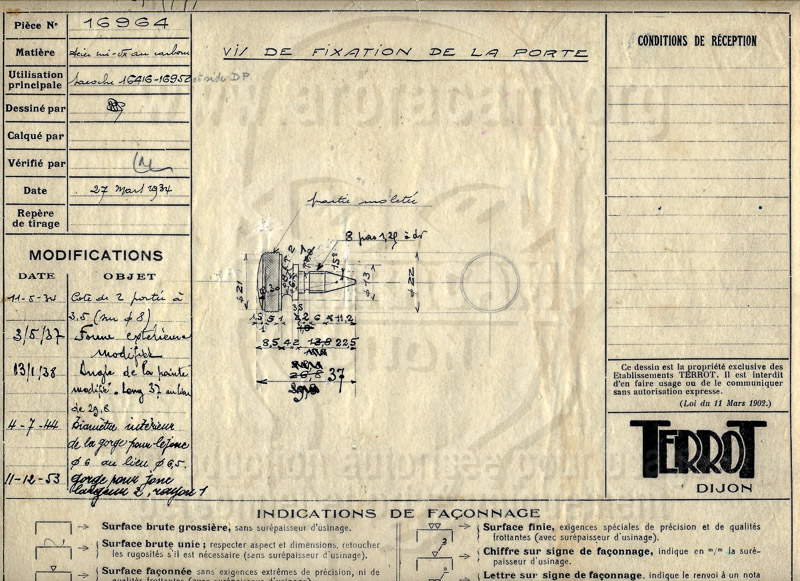 Pièce Nº 16964
Matière Acier mi-dur au carbone
Utilisation principale Sacoche 16416-16952
Dessiné par
Calqué par
Vérifié par
Date 27 Mars 1934
Repère de tirage
MODIFICATIONS
DATE OBJET
11-5-34 Cote de 2 portée à
3.5 (sur φ 8)
3/5/37 Forme extérieure
modifiée
13/1/38 Angle de la pointe
modifié. Long 37 au lieu
de 29,8
4-7-44 Diamètre intérieur
de la gorge pour le jonc
φ 6 au lieu φ 6,5.
11-12-53 gorge pour jonc
largeur 2, rayon 1
VIS DE FIXATION DE LA PORTE
partie moletée
8 pas 1,25 à dr
φ 21
15°
φ 13
φ 22
8,5 4,2 22,5
37
CONDITIONS DE RÉCEPTION
Ce dessin est la propriété exclusive des
Etablissements TERROT. Il est interdit
d'en faire usage ou de le communiquer
sans autorisation expresse.
(Loi du 11 Mars 1902.)
TERROT
DIJON
INDICATIONS DE FAÇONNAGE
Surface brute grossière, sans surépaisseur d'usinage.
Surface brute unie ; respecter aspect et dimensions, retoucher
les rugosités s'il est nécessaire (sans surépaisseur d'usinage).
Surface façonnée sans exigences extrêmes de précision, ni de
qualités frottantes (avec surépaisseur d'usinage).
Surface finie, exigences spéciales de précision et de qualités
frottantes (avec surépaisseur d'usinage).
Chiffre sur signe de façonnage, indique en m/m la surépaisseur d'usinage.
Lettre sur signe de façonnage, indique le renvoi à un nota